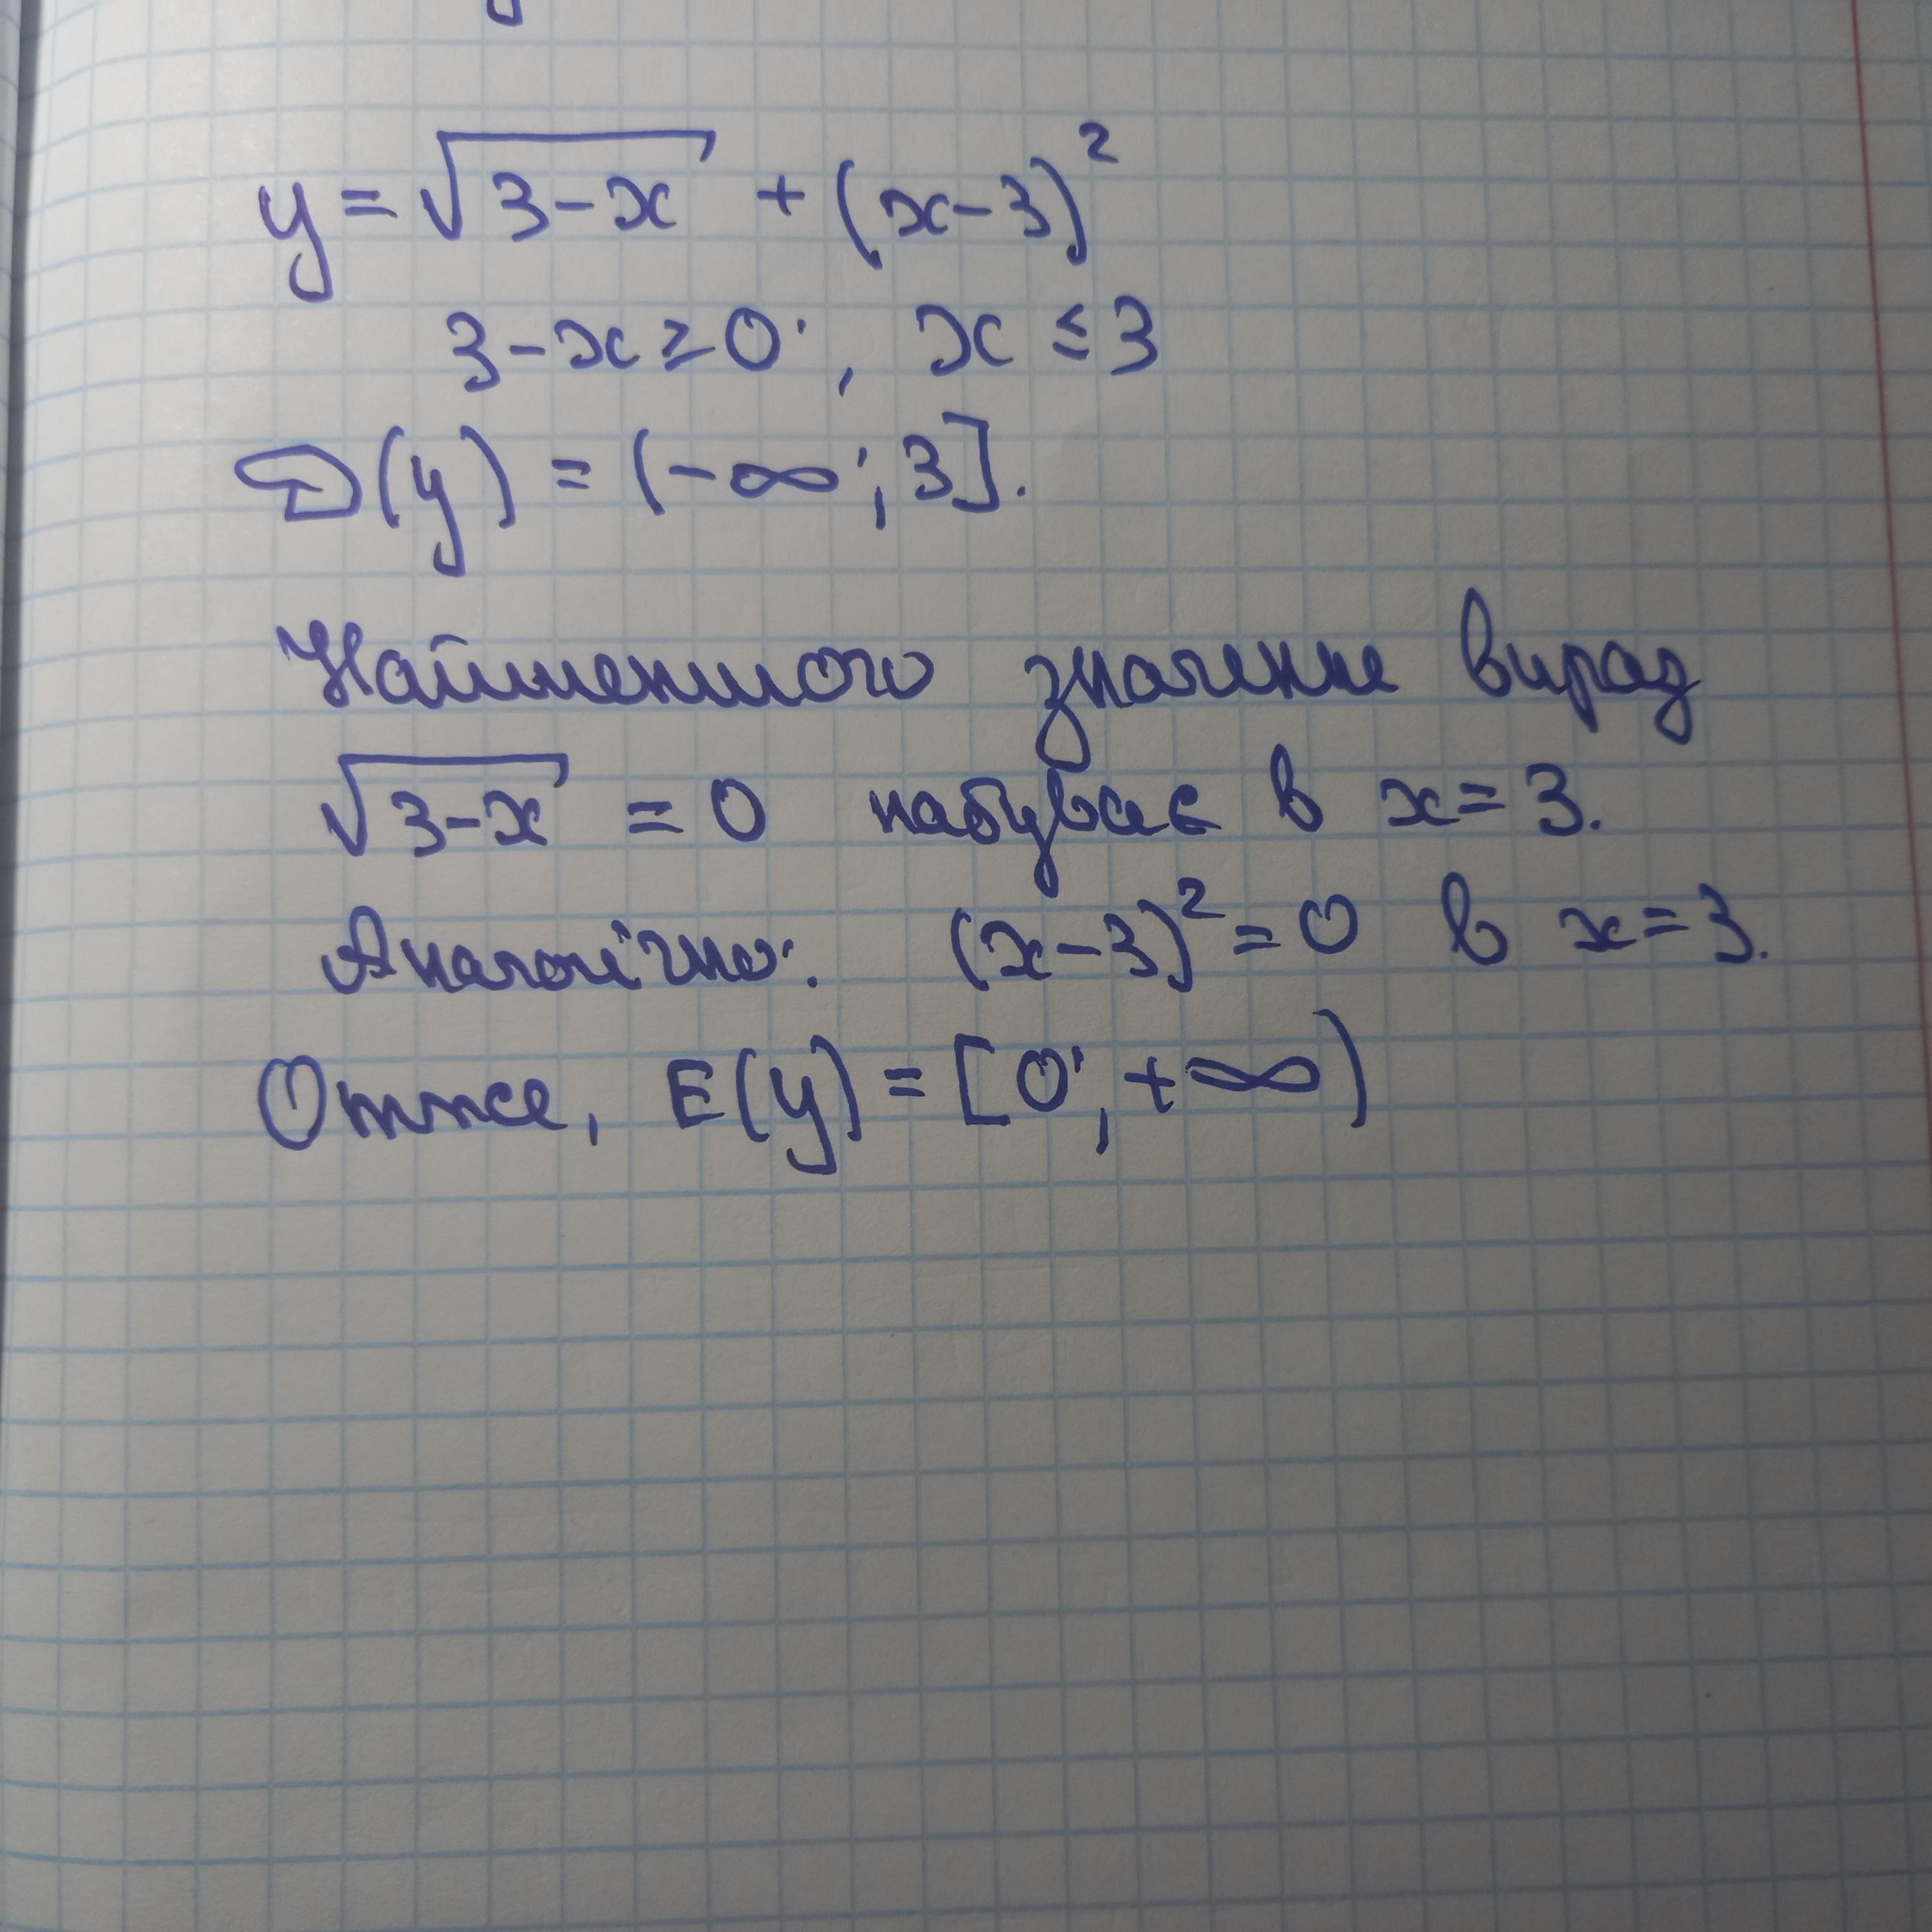 y = √(3-x) + (x-3)²
3-x ≥ 0; x ≤ 3
D(y) = (-∞; 3].
Найменшого значення вираз
√(3-x) = 0 набуває в x = 3.
Аналогічно: (x-3)² = 0 в x = 3.
Отже, E(y) = [0; +∞)